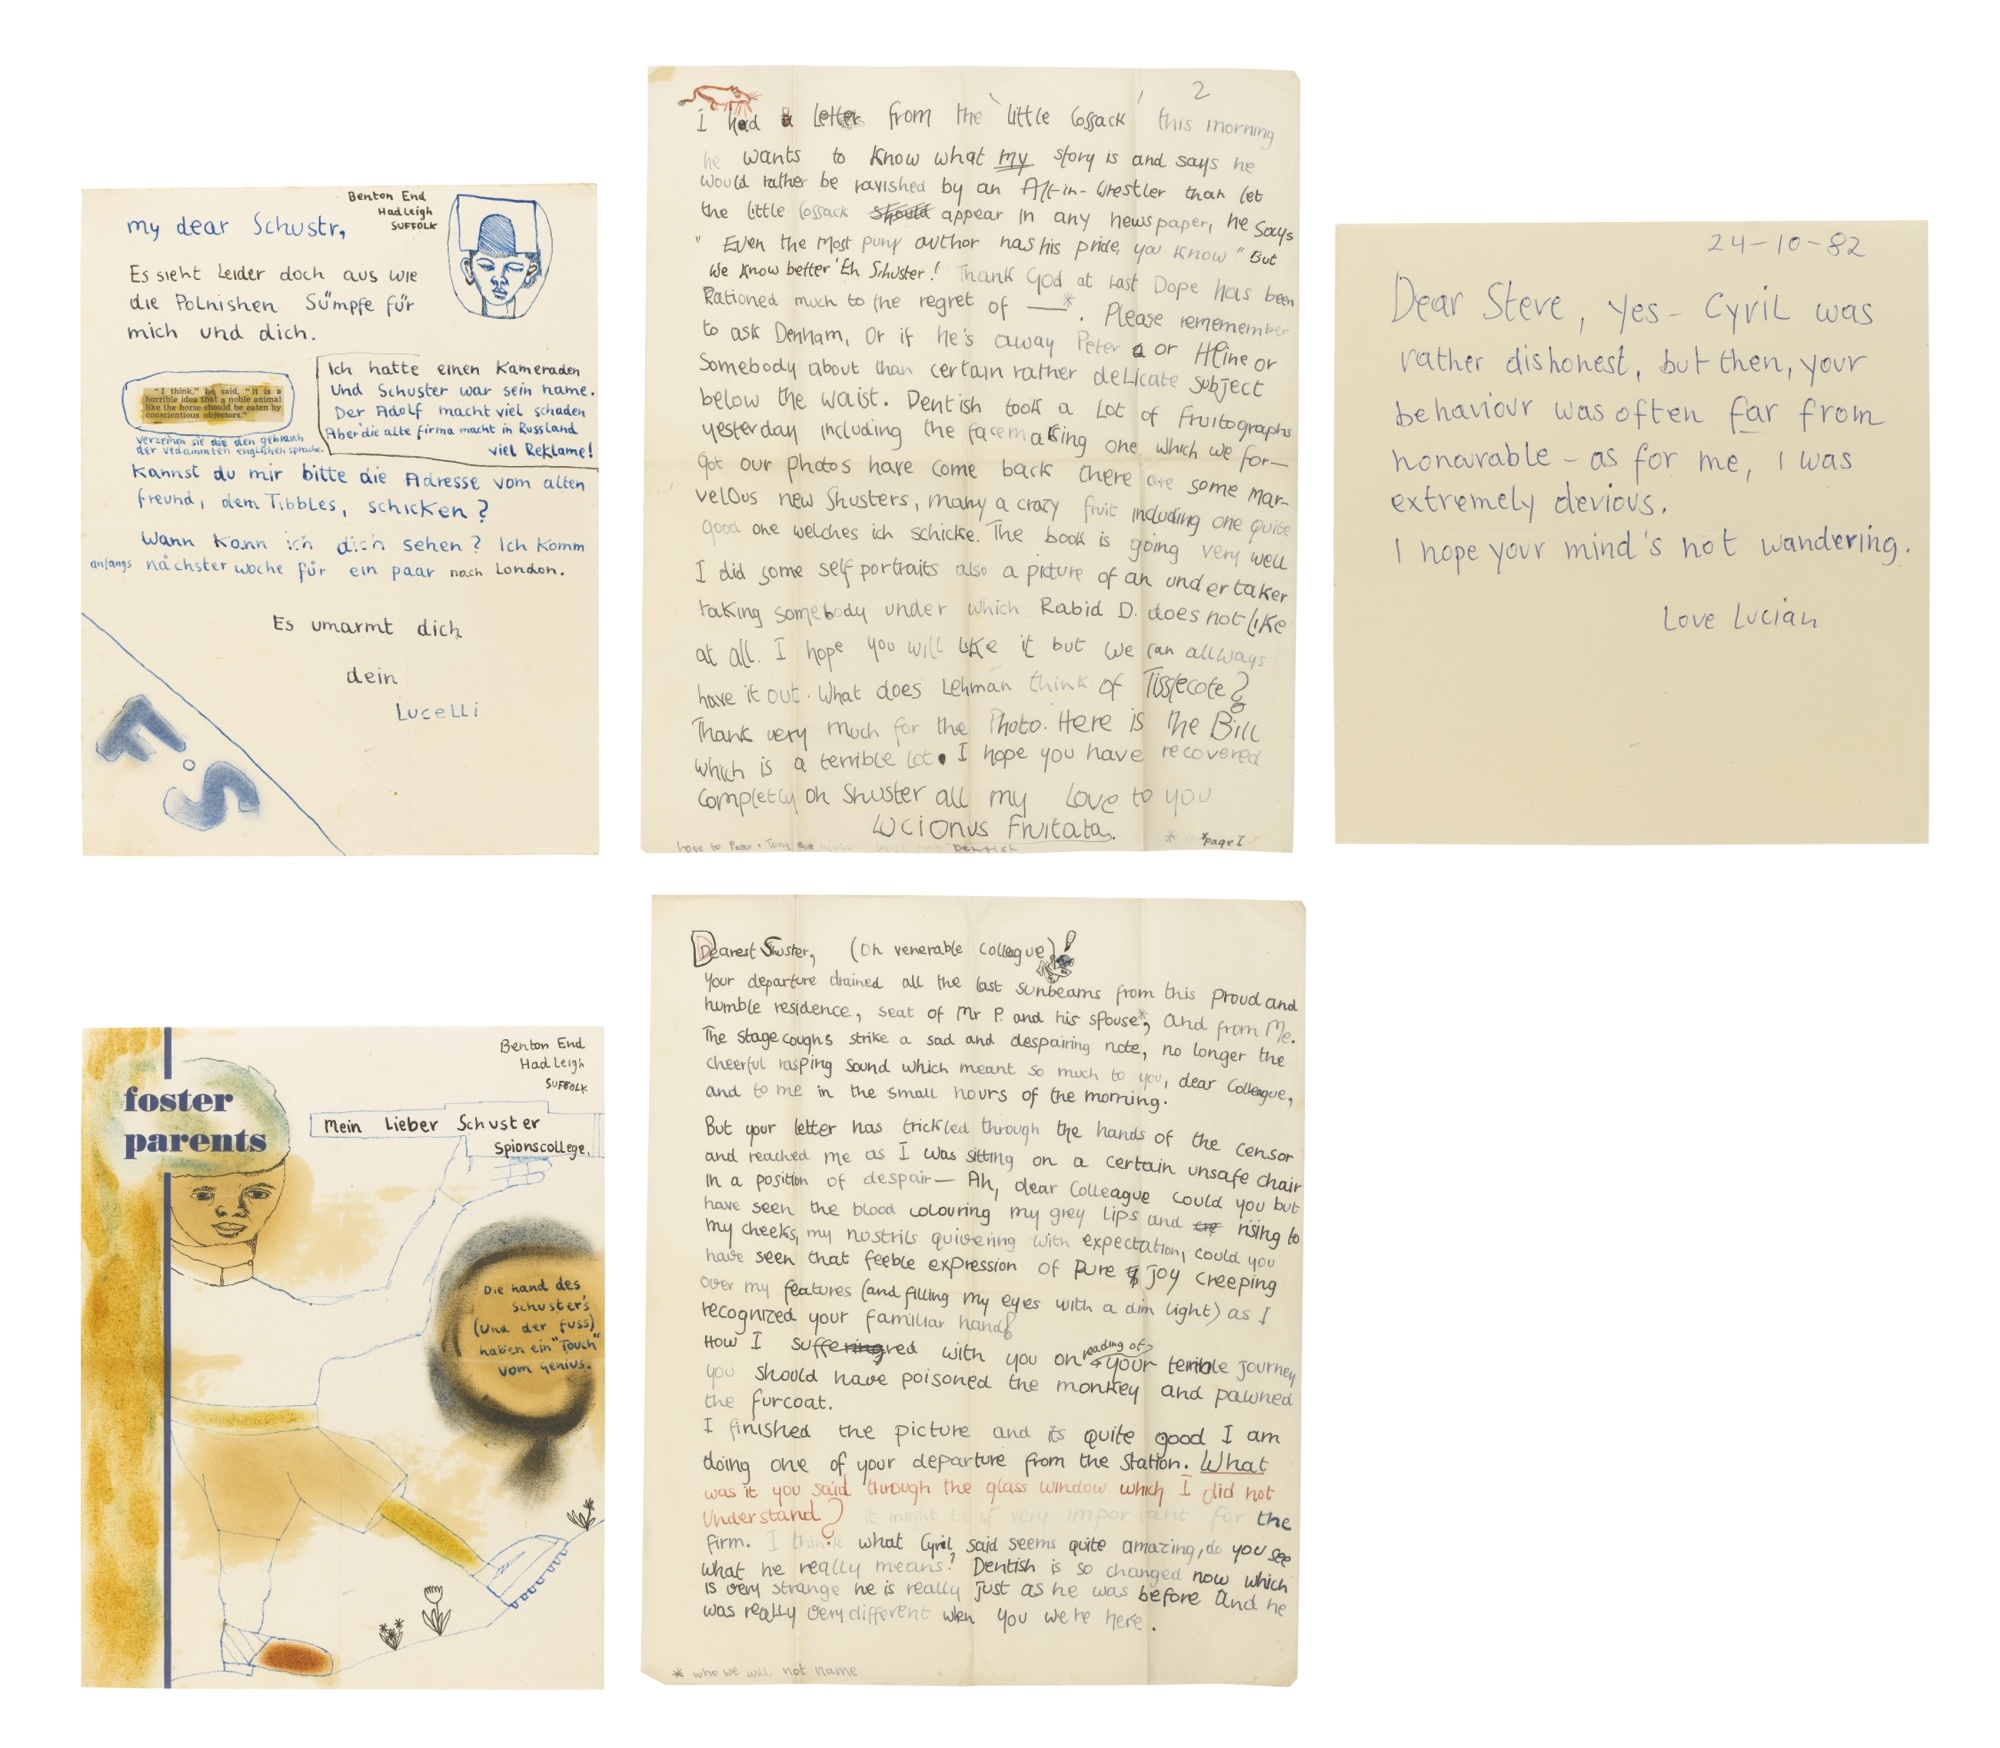 Benton End
Hadleigh
SUFFOLK
my dear Schustr,
Es sieht Leider doch aus wie
die Polnishen Sümpfe für
mich und dich.
"I think," he said, "it is a
horrible idea that a noble animal
like the horse should be eaten by
conscientious objectors."
verzeihen sie die den gebrauch
der verdammten englishen sprache.
Ich hatte einen Kameraden
Und Schuster war sein name.
Der Adolf macht viel schaden
Aber die alte firma macht in Russland
viel Reklame!
Kannst du mir bitte die Adresse vom alten
freund, dem Tibbles, schicken?
Wann kann ich dich sehen? Ich komm
anfangs nächster woche für ein paar nach London.
Es umarmt dich
dein
Lucelli
F.S
2
I had a letter from the 'little Cossack' this morning
he wants to know what my story is and says he
would rather be ravished by an All-in-Wrestler than let
the little Cossack should appear in any newspaper, he says
" Even the most puny author has his pride, you know" But
we know better 'Eh Shuster! Thank God at Last Dope has been
Rationed much to the regret of —*. Please rememember
to ask Denham, Or if he's away Peter or
Somebody about than certain rather delicate subject
below the waist. Dentish took a Lot of Fruitographs
yesterday including the facemaking one which we for—
got our photos have come back there are some mar-
velous new Shusters, many a crazy fruit including one quite
good one welches ich schicke. The book is going very well
I did some self portraits also a picture of an undertaker
taking somebody under which Rabid D. does not like
at all. I hope you will like it but we can allways
have it out. What does Lehman think of Tisslecote?
Thank very much for the Photo. Here is the Bill
which is a terrible lot. I hope you have recovered
completly oh Shuster all my Love to you
Lucionus Fruitata.
love to Peter + Tony Dentish
*page I
24-10-82
Dear Steve, yes - Cyril was
rather dishonest, but then, your
behaviour was often far from
honourable - as for me, I was
extremely devious.
I hope your mind's not wandering.
Love Lucian
foster
parents
Benton End
Hadleigh
SUFFOLK
Mein Lieber Schuster
Spionscollege.
Die hand des
Schuster's
(Und der fuss)
haben ein "Touch"
vom Genius.
Dearest Shuster, (Oh venerable Colleague)!
Your departure drained all the last sunbeams from this proud and
humble residence, seat of Mr P. and his spouse*, and from Me.
The stage coughs strike a sad and despairing note, no longer the
cheerful rasping sound which meant so much to you, dear Colleague,
and to me in the small hours of the morning.
But your letter has trickled through the hands of the censor
and reached me as I was sitting on a certain unsafe chair
In a position of despair— Ah, dear Colleague could you but
have seen the blood colouring my grey lips and rising to
my cheeks, my nostrils quivering with expectation, could you
have seen that feeble expression of pure joy creeping
over my features (and filling my eyes with a dim light) as I
recognized your familiar hand
How I suffered with you on reading of your terrible journey
you should have poisoned the monkey and pawned
the furcoat.
I finished the picture and its quite good I am
doing one of your departure from the station. What
was it you said through the glass window which I did not
Understand? it might be very important for the
firm. I think what Cyril said seems quite amazing, do you see
what he really means? Dentish is so changed now which
is very strange he is really just as he was before and he
was really very different when you were here.
* who we will not name